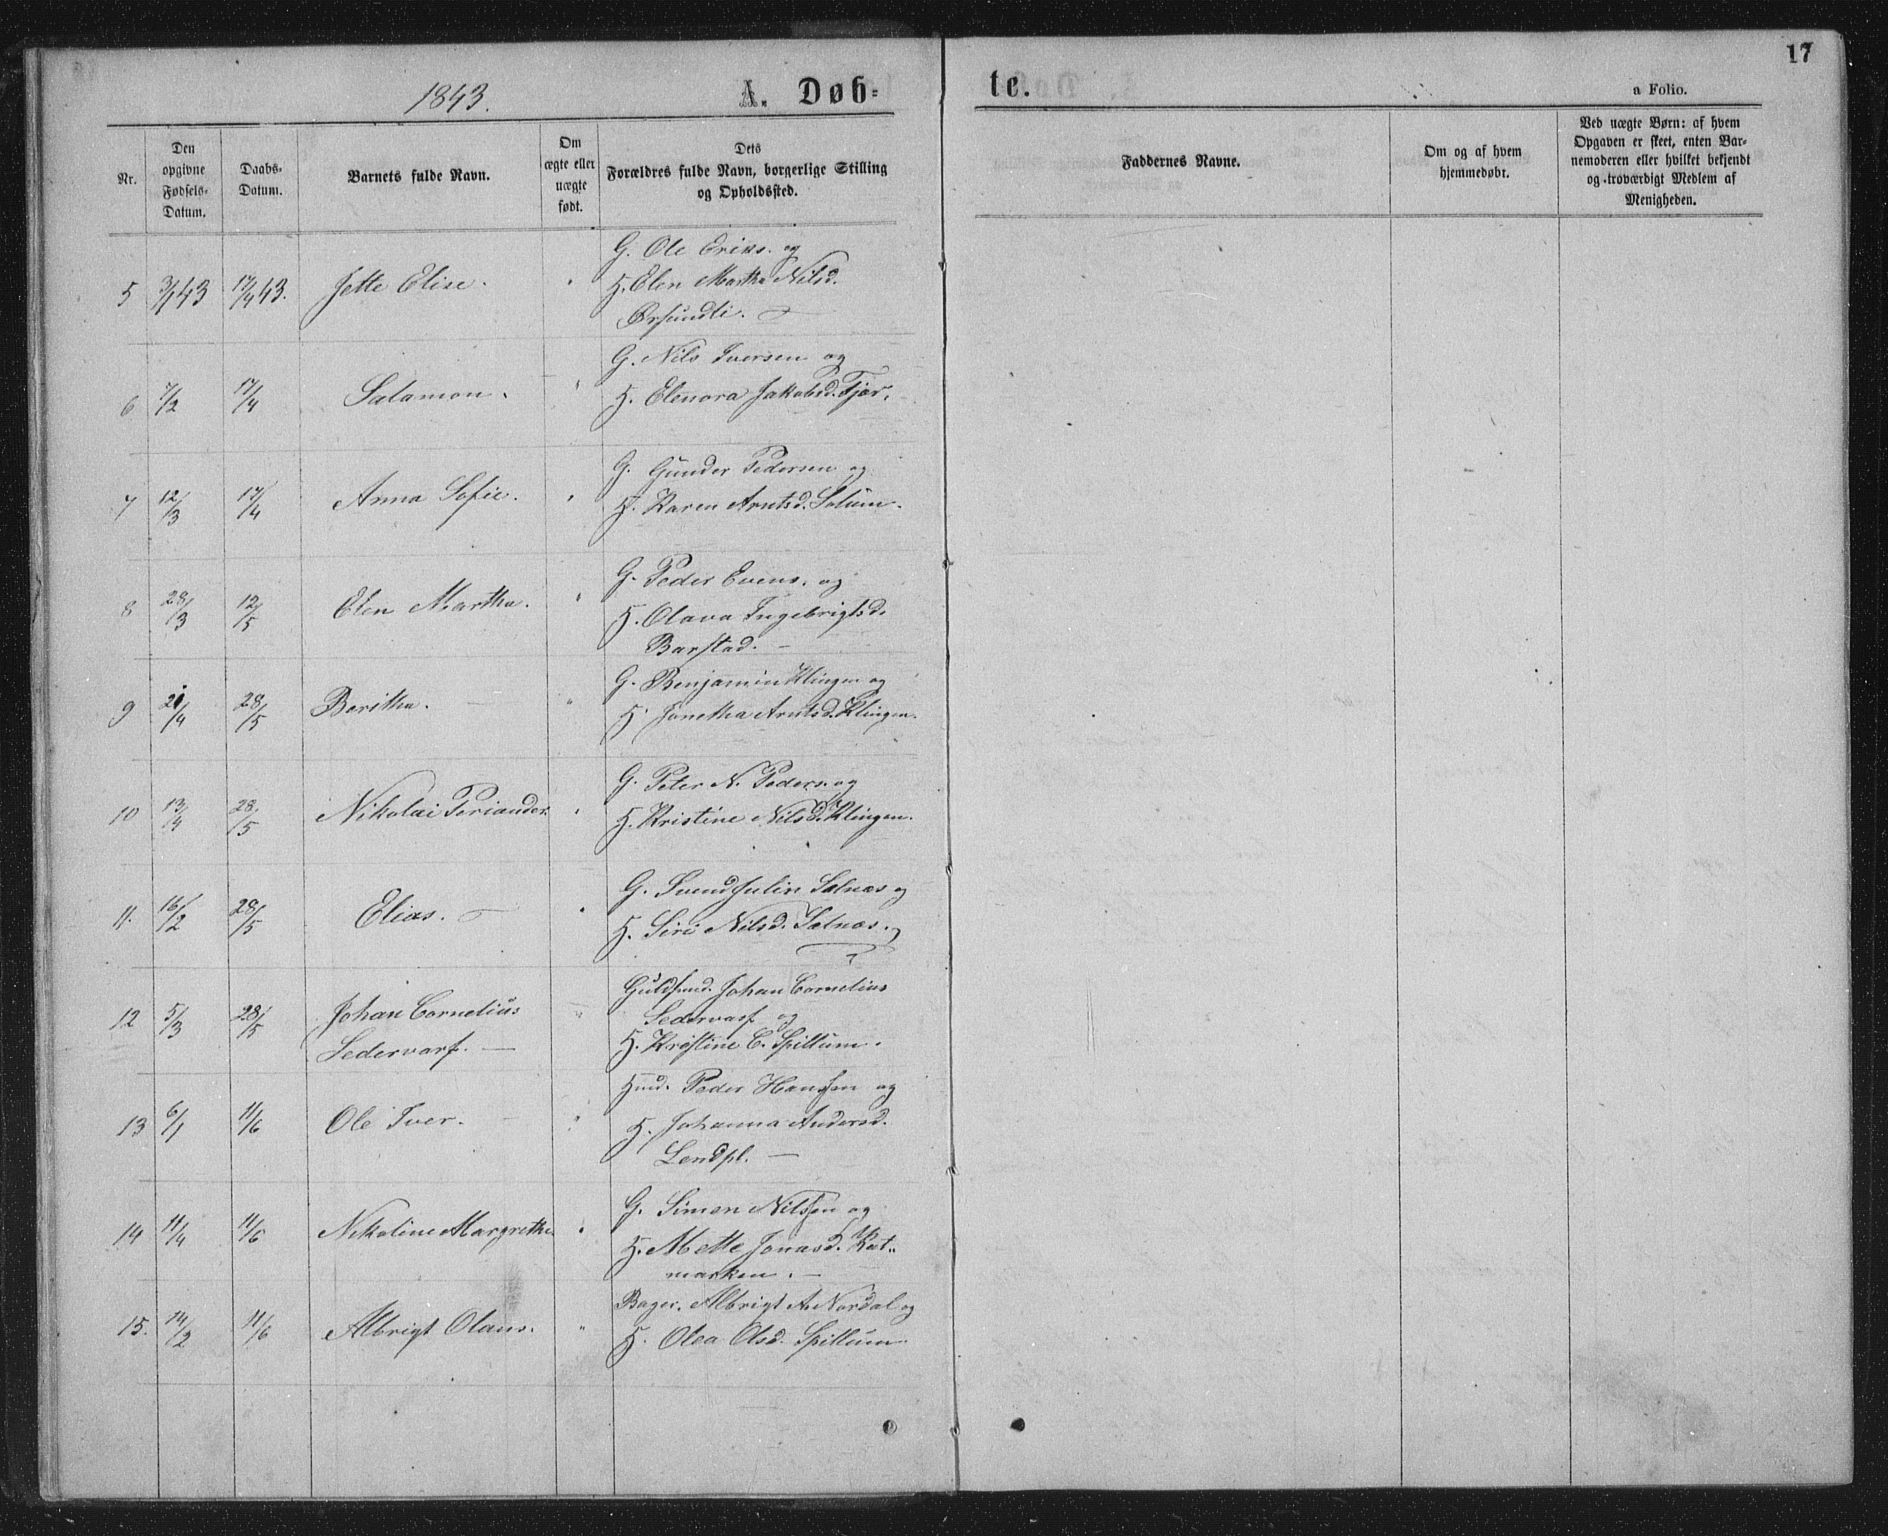 17
1843.
A. Døbte.
a Folio.
Nr.
Den opgivne Fødsels-Datum.
Daabs-Datum.
Barnets fulde Navn.
Om ægte eller uægte født.
Dets Forældres fulde Navn, borgerlige Stilling og Opholdssted.
Faddernes Navne.
Om og af hvem hjemmedøbt.
Ved uægte Børn: af hvem Opgaven er skeet, enten Barnemoderen eller hvilket bekjendt og troværdigt Medlem af Menigheden.
G. Ole Eriks. og
5 3/1 43 17/4 43. Jette Elise. H. Elen Martha Nilsd.
Ørsundli.
G. Nils Iversen og
6 7/2 17/4 Salamon. H. Elenora Jakobsd. Tjær.
G. Gunder Pedersen og
7 12/3 17/4 Anna Sofie. H. Karen Arntsd. Solum.
G. Peder Evens. og
8 28/3 12/5 Elen Martha. H. Olava Ingebrigtsd.
Barstad.
G. Benjamin Klingen og
9 21/4 28/5 Beritha. H. Jonetha Arntsd. Klingen.
G. Peter N. Peders. og
10 13/4 28/5 Nikolai Periander. H. Kristine Nilsd. Klingen.
G. Svend Julin Salnæs og
11. 16/2 28/5 Elias. H. Siri Nilsd. Salnæs.
Guldsmd. Johan Cornelius
12 5/3 28/5 Johan Cornelius Sedervarf og
Sedervarf. H. Kristine C. Spillum.
Hmd. Peder Hanssen og
13 6/1 11/6 Ole Iver. H. Johanna Andersd.
Lendpl.
G. Simon Nilssen og
14 11/4 11/6 Nikoline Margrethe. H. Mette Jonasd. Rat-
marken.
Bager. Albrigt A. Nordal og
15. 14/2 11/6 Albrigt Olaus. H. Olea Olsd. Spillum